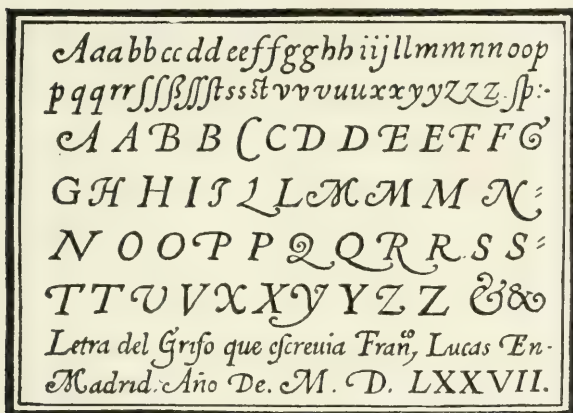 Aaabbccddeeffgghhiijllmmnnoop
pqqrrſſſßſſſtssstvvvuuxxyyzzz.ſp:-
A A B B C C D D E E F F G
G H H I I L L M M M N=
N O O P P Q Q R R. S S=
T T V V X X Y Y Z Z & &
Letra del Grifo que eſcreuia Franco, Lucas En-
Madrid. Año De. M. D. LXXVII.